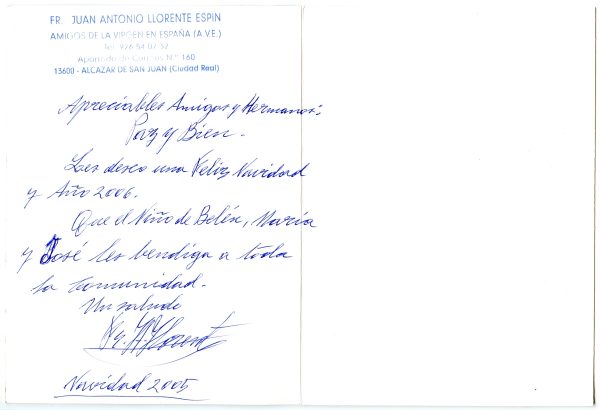 FR. JUAN ANTONIO LLORENTE ESPIN
AMIGOS DE LA VIRGEN EN ESPAÑA (A.V.E.)
Tel. 926-54 07 52
Apartado de Correos N.º 160
13600 - ALCAZAR DE SAN JUAN (Ciudad Real)
Apreciables Amigos y Hermanos:
Paz y Bien.
Les deseo una Feliz Navidad
y Año 2006.
Que el Niño de Belén, María
y José les bendiga a toda
la comunidad.
Un saludo
Fr. J. A. Llorente
Navidad 2005